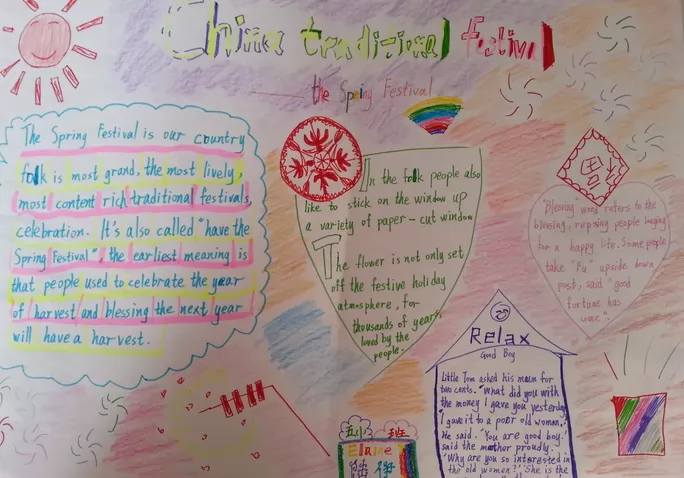 China traditional festival
the Spring Festival
The Spring Festival is our country
folk is most grand, the most lively,
most content rich traditional festivals
celebration. It's also called "have the
Spring Festival", the earliest meaning is
that people used to celebrate the year
of harvest and blessing the next year
will have a harvest.
In the folk people also
like to stick on the window up
a variety of paper-cut window
The flower is not only set
off the festive holiday
atmosphere, for
thousands of years
loved by the
people.
"Blessing" word refers to the
blessing, people longing
for a happy life. Some people
take "Fu" upside down
post, said "good
fortune has
Relax
Good Boy
Little Tom asked his mum for
two cents. "What did you with
the money I gave you yesterday
"I gave it to a poor old woman,"
He said. "You are good boy."
said the mother proudly.
"Why are you so interested in
the old women?" "She is the
班
Elaine